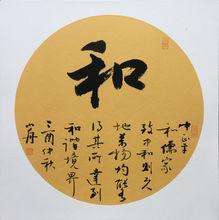 和
中正平
和儒家
致中和则天
地萬物均能
得其所達到
和谐境界
酉仲秋